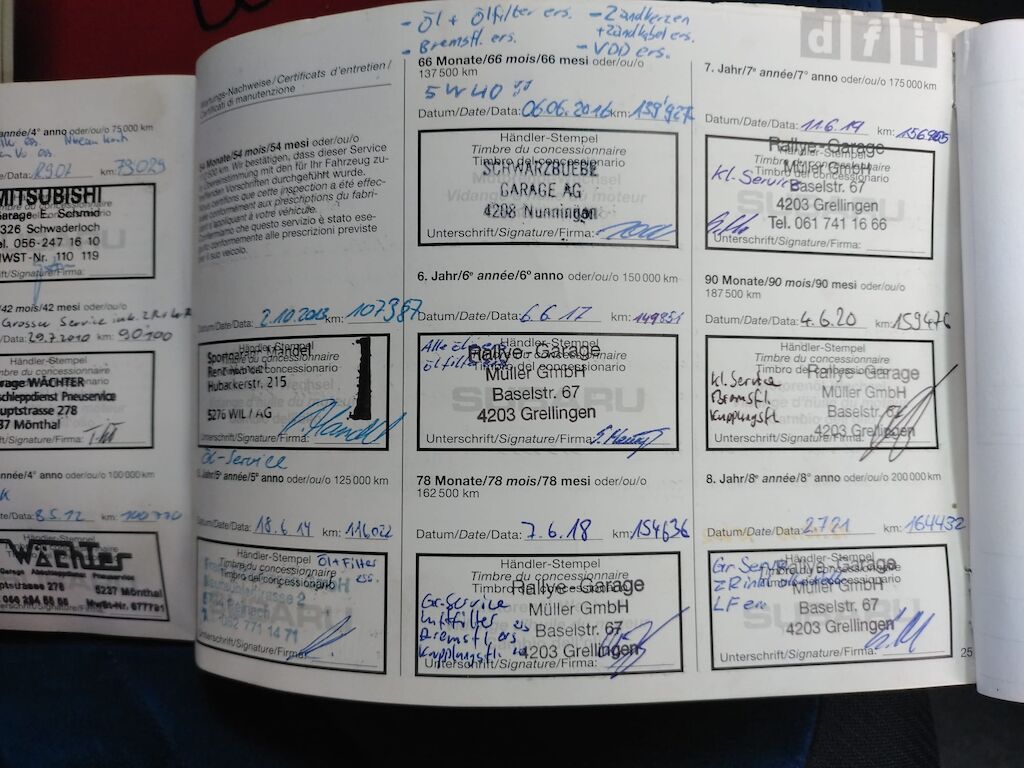 année/4° anno oder/ou/o 75 000 km
Date/Data: km: 79029
MITSUBISHI
Garage E. Schmid
5326 Schwaderloch
Tel. 056-247 16 10
MWST-Nr. 110 119
ft/Signature/Firma:
42 mois/42 mesi oder/ou/o
Grosser Service ink.
/Date/Data: 29.7.2010 km: 90'100
Händler-Stempel
Garage WÄCHTER
Abschleppdienst Pneuservice
Hauptstrasse 278
5237 Mönthal
ft/Signature/Firma:
année/4° anno oder/ou/o 100 000 km
/Date/Data: 8.5.12 km:
Wächter
Garage Abschlepp Pneuservice
Hauptstrasse 278
5237 Mönthal
Wartungs-Nachweise/Certificats d'entretien/
Certificati di manutenzione
54 Monate/54 mois/54 mesi oder/ou/o
km. Wir bestätigen, dass dieser Service
in Übereinstimmung mit den für Ihr Fahrzeug zu-
Vorschriften durchgeführt wurde.
certifions que cette inspection a été effec-
conformément aux prescriptions du fabri-
s'appliquant à votre véhicule.
che questo servizio è stato ese-
conformemente alle prescrizioni previste
suo veicolo.
Datum/Date/Data: 2.10.2013 km: 107387
Händler-Stempel
Timbre du concessionnaire
Timbro del concessionario
Sportgarage Mandel
Hubackerstr. 215
5276 WIL / AG
Unterschrift/Signature/Firma:
Öl-Service
5. Jahr/5e année/5° anno oder/ou/o 125 000 km
Datum/Date/Data: 18.6.14 km: 116022
Händler-Stempel Ölfilter
Timbre du concessionnaire ers.
Timbro del concessionario
062 771 14 71
Unterschrift/Signature/Firma:
- Öl + Ölfilter ers. - Zündkerzen
+ Zündkabel ers.
- Bremsfl. ers. - VDD ers.
66 Monate/66 mois/66 mesi oder/ou/o
137 500 km
5W40
Datum/Date/Data: 06.06.2016 km: 139'927
Händler-Stempel
Timbre du concessionnaire
Timbro del concessionario
SCHWARZBUEBE
GARAGE AG
4208 Nunningen
Unterschrift/Signature/Firma:
6. Jahr/6e année/6° anno oder/ou/o 150 000 km
Datum/Date/Data: 6.6.17 km: 149851
Händler-Stempel
Timbre du concessionnaire
Timbro del concessionario
Rallye-Garage
Müller GmbH
Baselstr. 67
4203 Grellingen
Unterschrift/Signature/Firma:
78 Monate/78 mois/78 mesi oder/ou/o
162 500 km
Datum/Date/Data: 7.6.18 km: 154636
Händler-Stempel
Timbre du concessionnaire
Timbro del concessionario
Rallye-Garage
Müller GmbH
Baselstr. 67
4203 Grellingen
Gr. Service
Luftfilter ers
Bremsfl. ers
Kupplungsfl.
Unterschrift/Signature/Firma:
dfi
7. Jahr/7e année/7° anno oder/ou/o 175 000 km
Datum/Date/Data: 11.6.19 km: 156965
Händler-Stempel
Timbre du concessionnaire
Timbro del concessionario
Rallye-Garage
Müller GmbH
Baselstr. 67
4203 Grellingen
Tel. 061 741 16 66
kl. Service
Unterschrift/Signature/Firma:
90 Monate/90 mois/90 mesi oder/ou/o
187 500 km
Datum/Date/Data: 4.6.20 km: 159476
Händler-Stempel
Timbre du concessionnaire
Timbro del concessionario
Rallye-Garage
Müller GmbH
Baselstr. 67
4203 Grellingen
kl. Service
Bremsfl.
Kupplungsfl.
Unterschrift/Signature/Firma:
8. Jahr/8e année/8° anno oder/ou/o 200 000 km
Datum/Date/Data: 2.7.21 km: 164432
Händler-Stempel
Timbre du concessionnaire
Timbro del concessionario
Rallye-Garage
Müller GmbH
Baselstr. 67
4203 Grellingen
Gr Service
LF
Unterschrift/Signature/Firma:
25